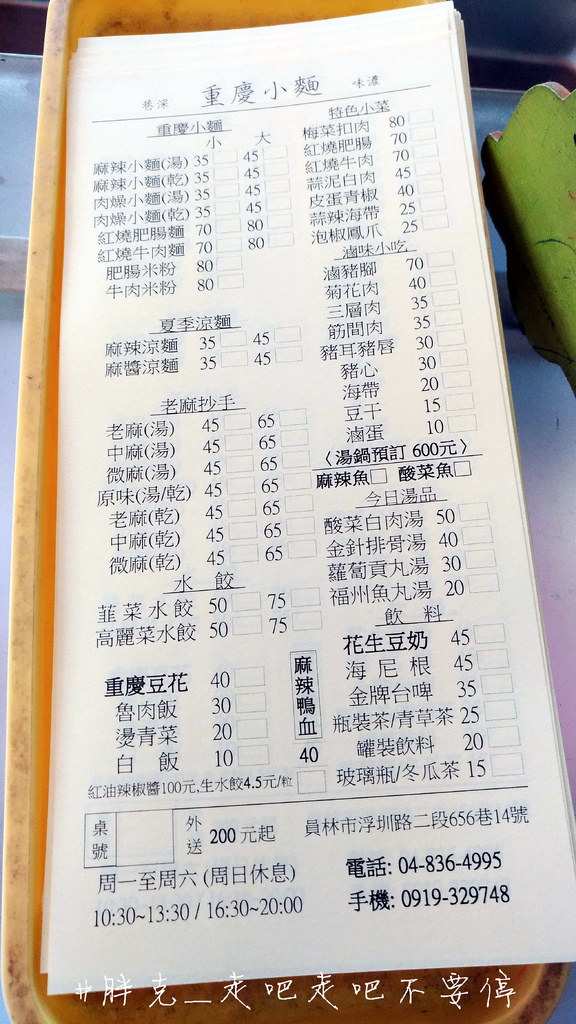 巷深 重慶小麵 味濃
重慶小麵
小 大
麻辣小麵(湯) 35 45
麻辣小麵(乾) 35 45
肉燥小麵(湯) 35 45
肉燥小麵(乾) 35 45
紅燒肥腸麵 70 80
紅燒牛肉麵 70 80
肥腸米粉 80
牛肉米粉 80
夏季涼麵
麻辣涼麵 35 45
麻醬涼麵 35 45
老麻抄手
老麻(湯) 45 65
中麻(湯) 45 65
微麻(湯) 45 65
原味(湯/乾) 45 65
老麻(乾) 45 65
中麻(乾) 45 65
微麻(乾) 45 65
水 餃
韭菜水餃 50 75
高麗菜水餃 50 75
重慶豆花 40
魯肉飯 30
燙青菜 20
白 飯 10
麻辣鴨血
40
紅油辣椒醬100元,生水餃4.5元/粒
特色小菜
梅菜扣肉 80
紅燒肥腸 70
紅燒牛肉 70
蒜泥白肉 45
皮蛋青椒 40
蒜辣海帶 25
泡椒鳳爪 25
滷味小吃
滷豬腳 70
菊花肉 40
三層肉 35
筋間肉 35
豬耳豬唇 30
豬心 30
海帶 20
豆干 15
滷蛋 10
〈湯鍋預訂 600元〉
麻辣魚 酸菜魚
今日湯品
酸菜白肉湯 50
金針排骨湯 40
蘿蔔貢丸湯 30
福州魚丸湯 20
飲 料
花生豆奶 45
海尼根 45
金牌台啤 35
瓶裝茶/青草茶 25
罐裝飲料 20
玻璃瓶/冬瓜茶 15
桌號
外送 200元起
周一至周六 (周日休息)
10:30~13:30 / 16:30~20:00
員林市浮圳路二段656巷14號
電話: 04-836-4995
手機: 0919-329748
#胖克_走吧走吧不要停